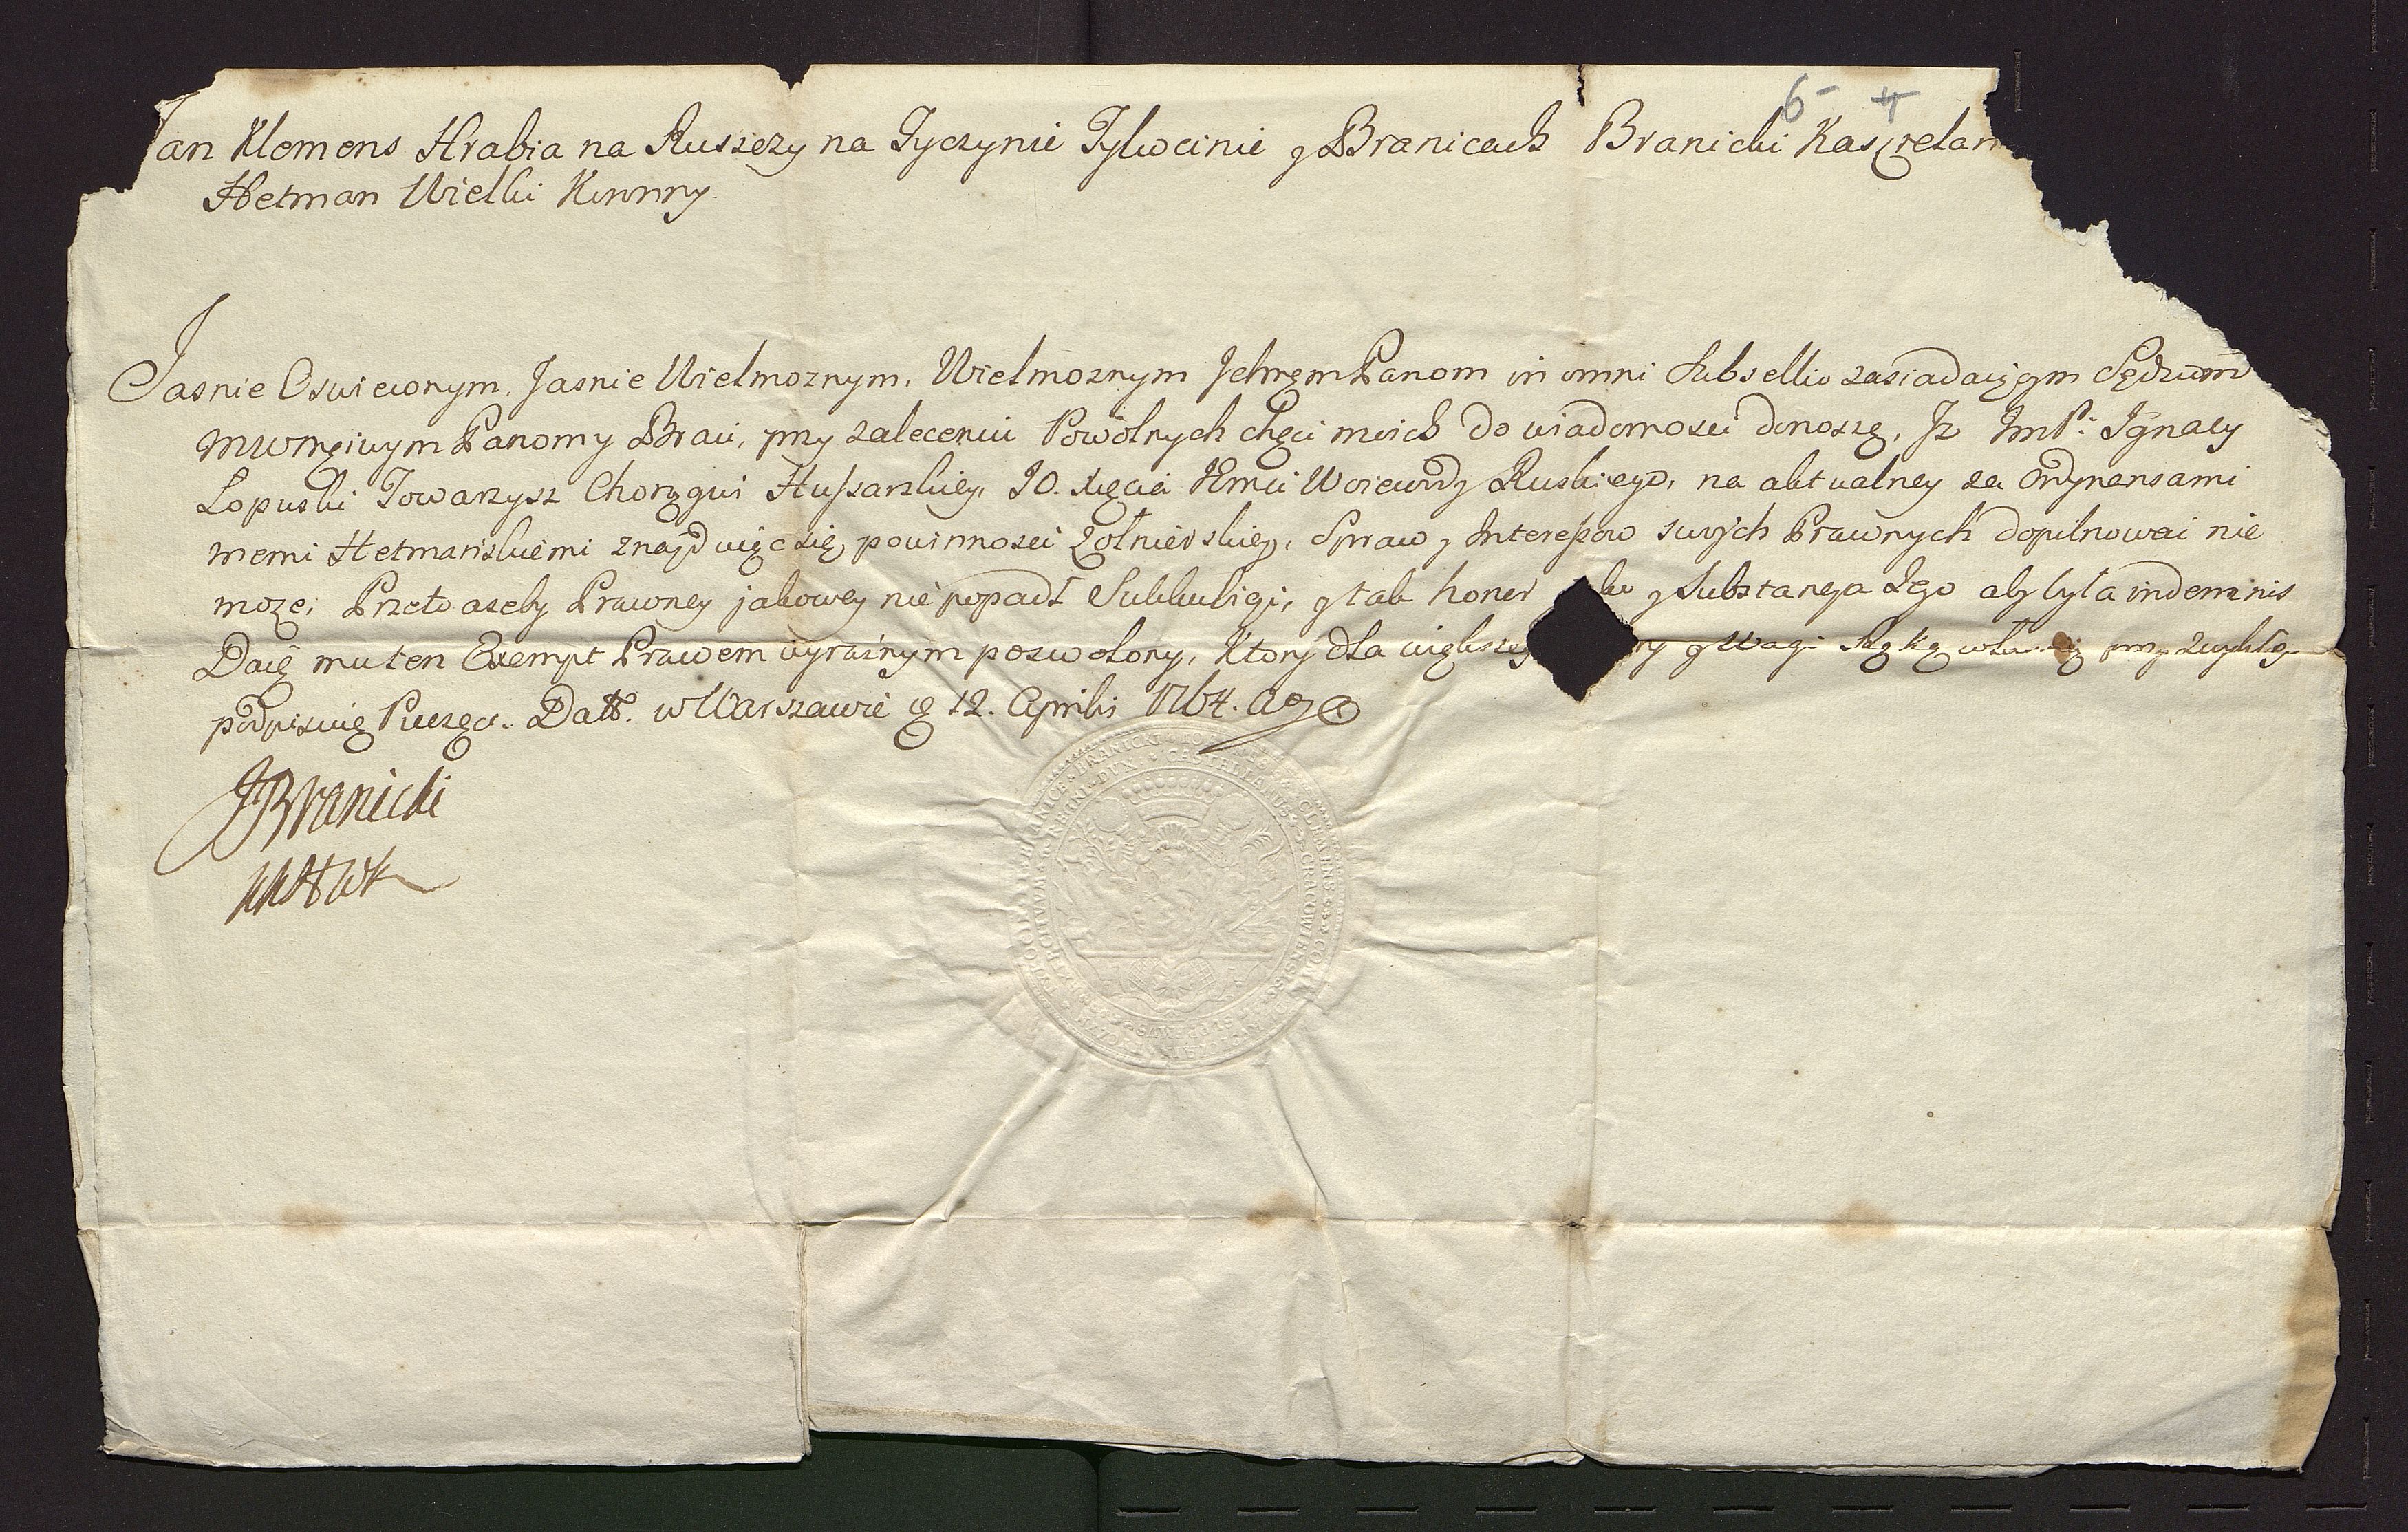 6- 4
Jan Klemens Hrabia na Ruszczy na Tyczynie Tykocinie y Branicach Branicki Kasztelan
Hetman Wielki Koronny
Jasnie Oswieconym, Jasnie Wielmoznym, Wielmoznym Ichmcm Panom in omni Subsellio zasiadaiącym Sędziom
Mwmciwym Panom y Braci, przy zaleceniu Powolnych chęci moich do wiadomosci donoszę, Jz ImP. Jgnacy
Łopuski Towarzysz Chorągwi Hussarskiey, JO. Xięcia Jmci Woiewody Ruskiego, na aktualney za Ordynansami
memi Hetmańskiemi znayduięc się powinnosci Zołnierskiey, Spraw y Interessow swych Prawnych dopilnowac nie
moze, Przeto azeby Prawney jakowey nie popadł Sukkubicyi, y tak honor y Substancya Jego aby była indemnis
Daię mu ten Exempt Prawem wyraznym pozwolony, Ktory dla większey y Wagi Ręką własną przy zwykłey
podpisuię Pieczęci. Datt. w Warszawie d 12. Aprilis 1764. Ao
JBranicki
KKHWK